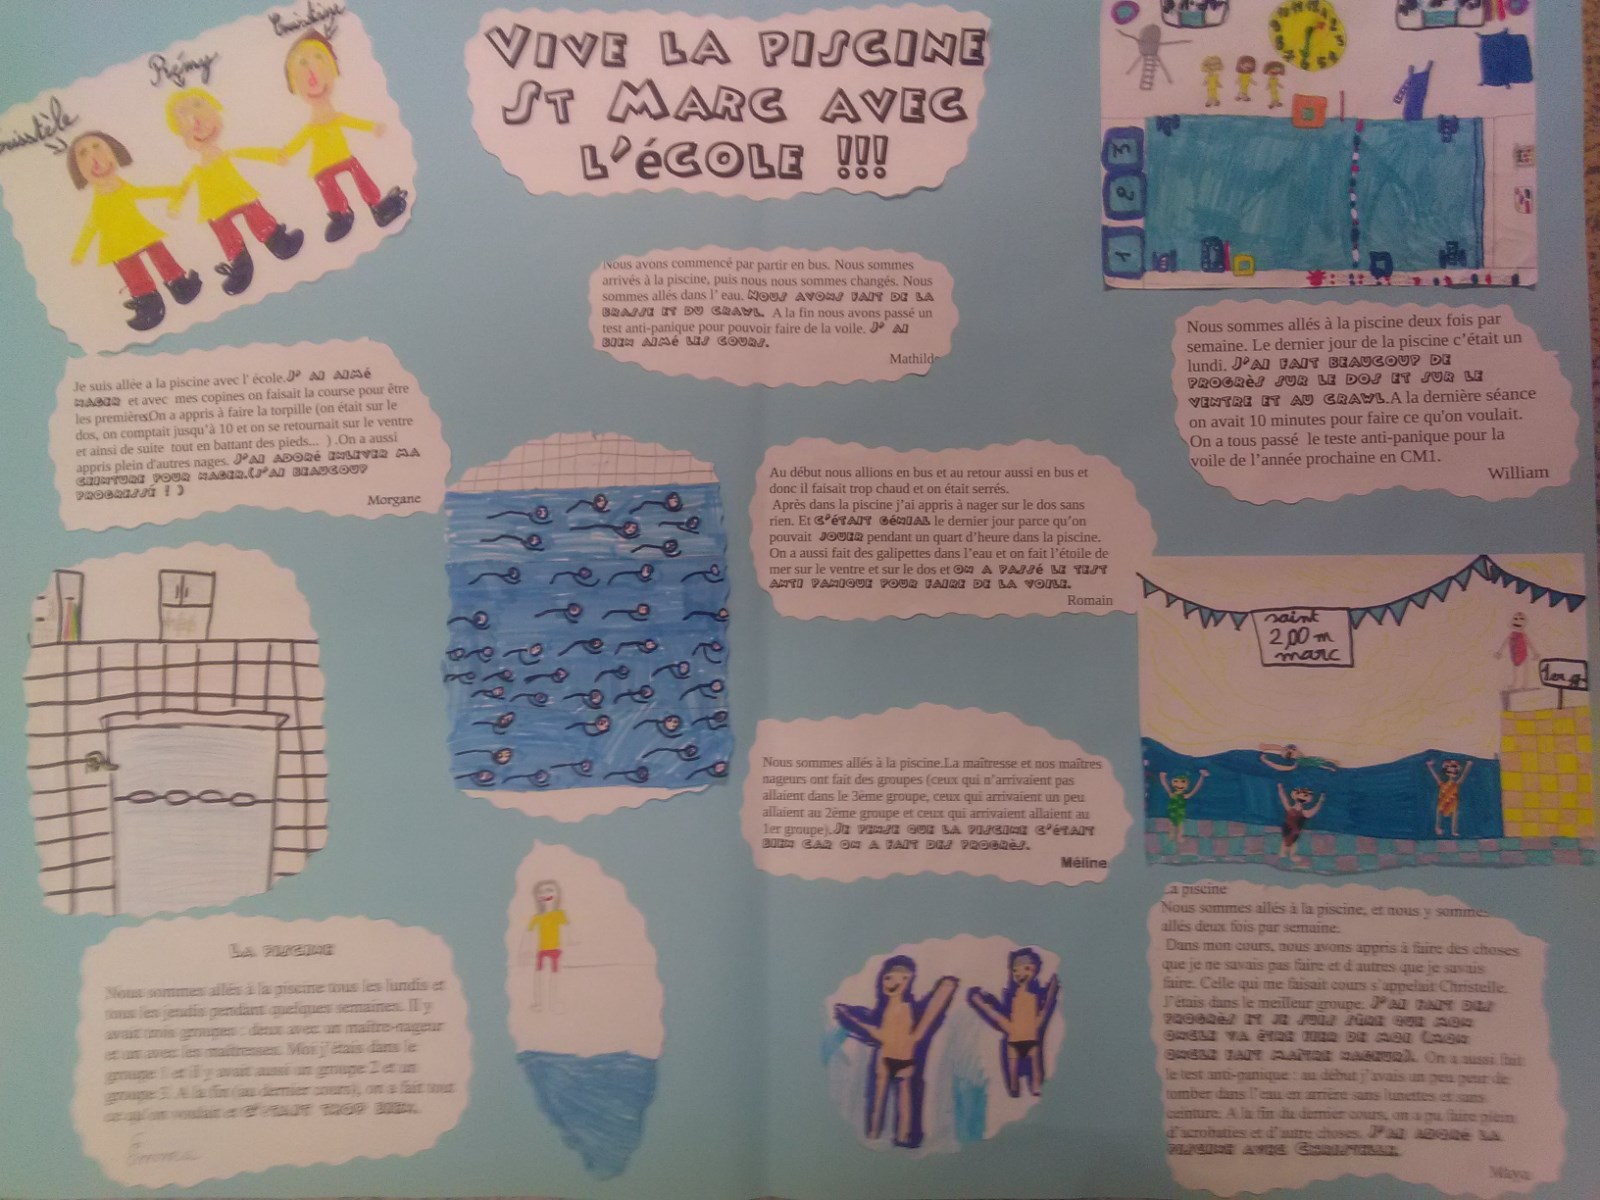 Rémy
VIVE LA PISCINE
ST MARC AVEC
L'éCOLE !!!
3
2
1
Nous avons commencé par partir en bus. Nous sommes
arrivés à la piscine, puis nous nous sommes changés. Nous
sommes allés dans l' eau. NOUS AVONS FAIT DE LA
BRASSE ET DU CRAWL. A la fin nous avons passé un
test anti-panique pour pouvoir faire de la voile. J' AI
BIEN AIMé LES COURS.
Mathilde
Nous sommes allés à la piscine deux fois par
semaine. Le dernier jour de la piscine c'était un
lundi. J'AI FAIT BEAUCOUP DE
PROGRèS SUR LE DOS ET SUR LE
VENTRE ET AU CRAWL.A la dernière séance
on avait 10 minutes pour faire ce qu'on voulait.
On a tous passé le teste anti-panique pour la
voile de l'année prochaine en CM1.
William
Je suis allée a la piscine avec l' école.J' AI AIMé
NAGER et avec mes copines on faisait la course pour être
les premières.On a appris à faire la torpille (on était sur le
dos, on comptait jusqu'à 10 et on se retournait sur le ventre
et ainsi de suite tout en battant des pieds... ) .On a aussi
appris plein d'autres nages. J'AI ADORé ENLEVER MA
CEINTURE POUR NAGER.(J'AI BEAUCOUP
PROGRESSÉ ! )
Morgane
Au début nous allions en bus et au retour aussi en bus et
donc il faisait trop chaud et on était serrés.
Après dans la piscine j'ai appris à nager sur le dos sans
rien. Et C'ÉTAIT GÉNIAL le dernier jour parce qu'on
pouvait JOUER pendant un quart d'heure dans la piscine.
On a aussi fait des galipettes dans l'eau et on fait l'étoile de
mer sur le ventre et sur le dos et ON A PASSÉ LE TEST
ANTI PANIQUE POUR FAIRE DE LA VOILE.
Romain
saint
2,00 m
marc
Nous sommes allés à la piscine.La maîtresse et nos maîtres
nageurs ont fait des groupes (ceux qui n'arrivaient pas
allaient dans le 3ème groupe, ceux qui arrivaient un peu
allaient au 2ème groupe et ceux qui arrivaient allaient au
1er groupe).JE PENSE QUE LA PISCINE C'ÉTAIT
BIEN CAR ON A FAIT DES PROGRÈS.
Méline
LA PISCINE
Nous sommes allés à la piscine tous les lundis et
tous les jeudis pendant quelques semaines. Il y
avait trois groupes : deux avec un maître-nageur
et un avec les maîtresses. Moi j'étais dans le
groupe 1 et il y avait aussi un groupe 2 et un
groupe 3. A la fin (au dernier cours), on a fait tout
ce qu'on voulait et C'ÉTAIT TROP BIEN.
La piscine
Nous sommes allés à la piscine, et nous y sommes
allés deux fois par semaine.
Dans mon cours, nous avons appris à faire des choses
que je ne savais pas faire et d autres que je savais
faire. Celle qui me faisait cours s'appelait Christelle.
J'étais dans le meilleur groupe. J'AI FAIT DES
PROGRÈS ET JE SUIS SÛRE QUE MON
ONCLE VA ÊTRE FIER DE MOI (MON
ONCLE FAIT MAÎTRE NAGEUR). On a aussi fait
le test anti-panique : au début j'avais un peu peur de
tomber dans l'eau en arrière sans lunettes et sans
ceinture. A la fin du dernier cours, on a pu faire plein
d'acrobaties et d'autre choses. J'AI ADORé LA
PISCINE AVEC CHRISTELLE.
Maya